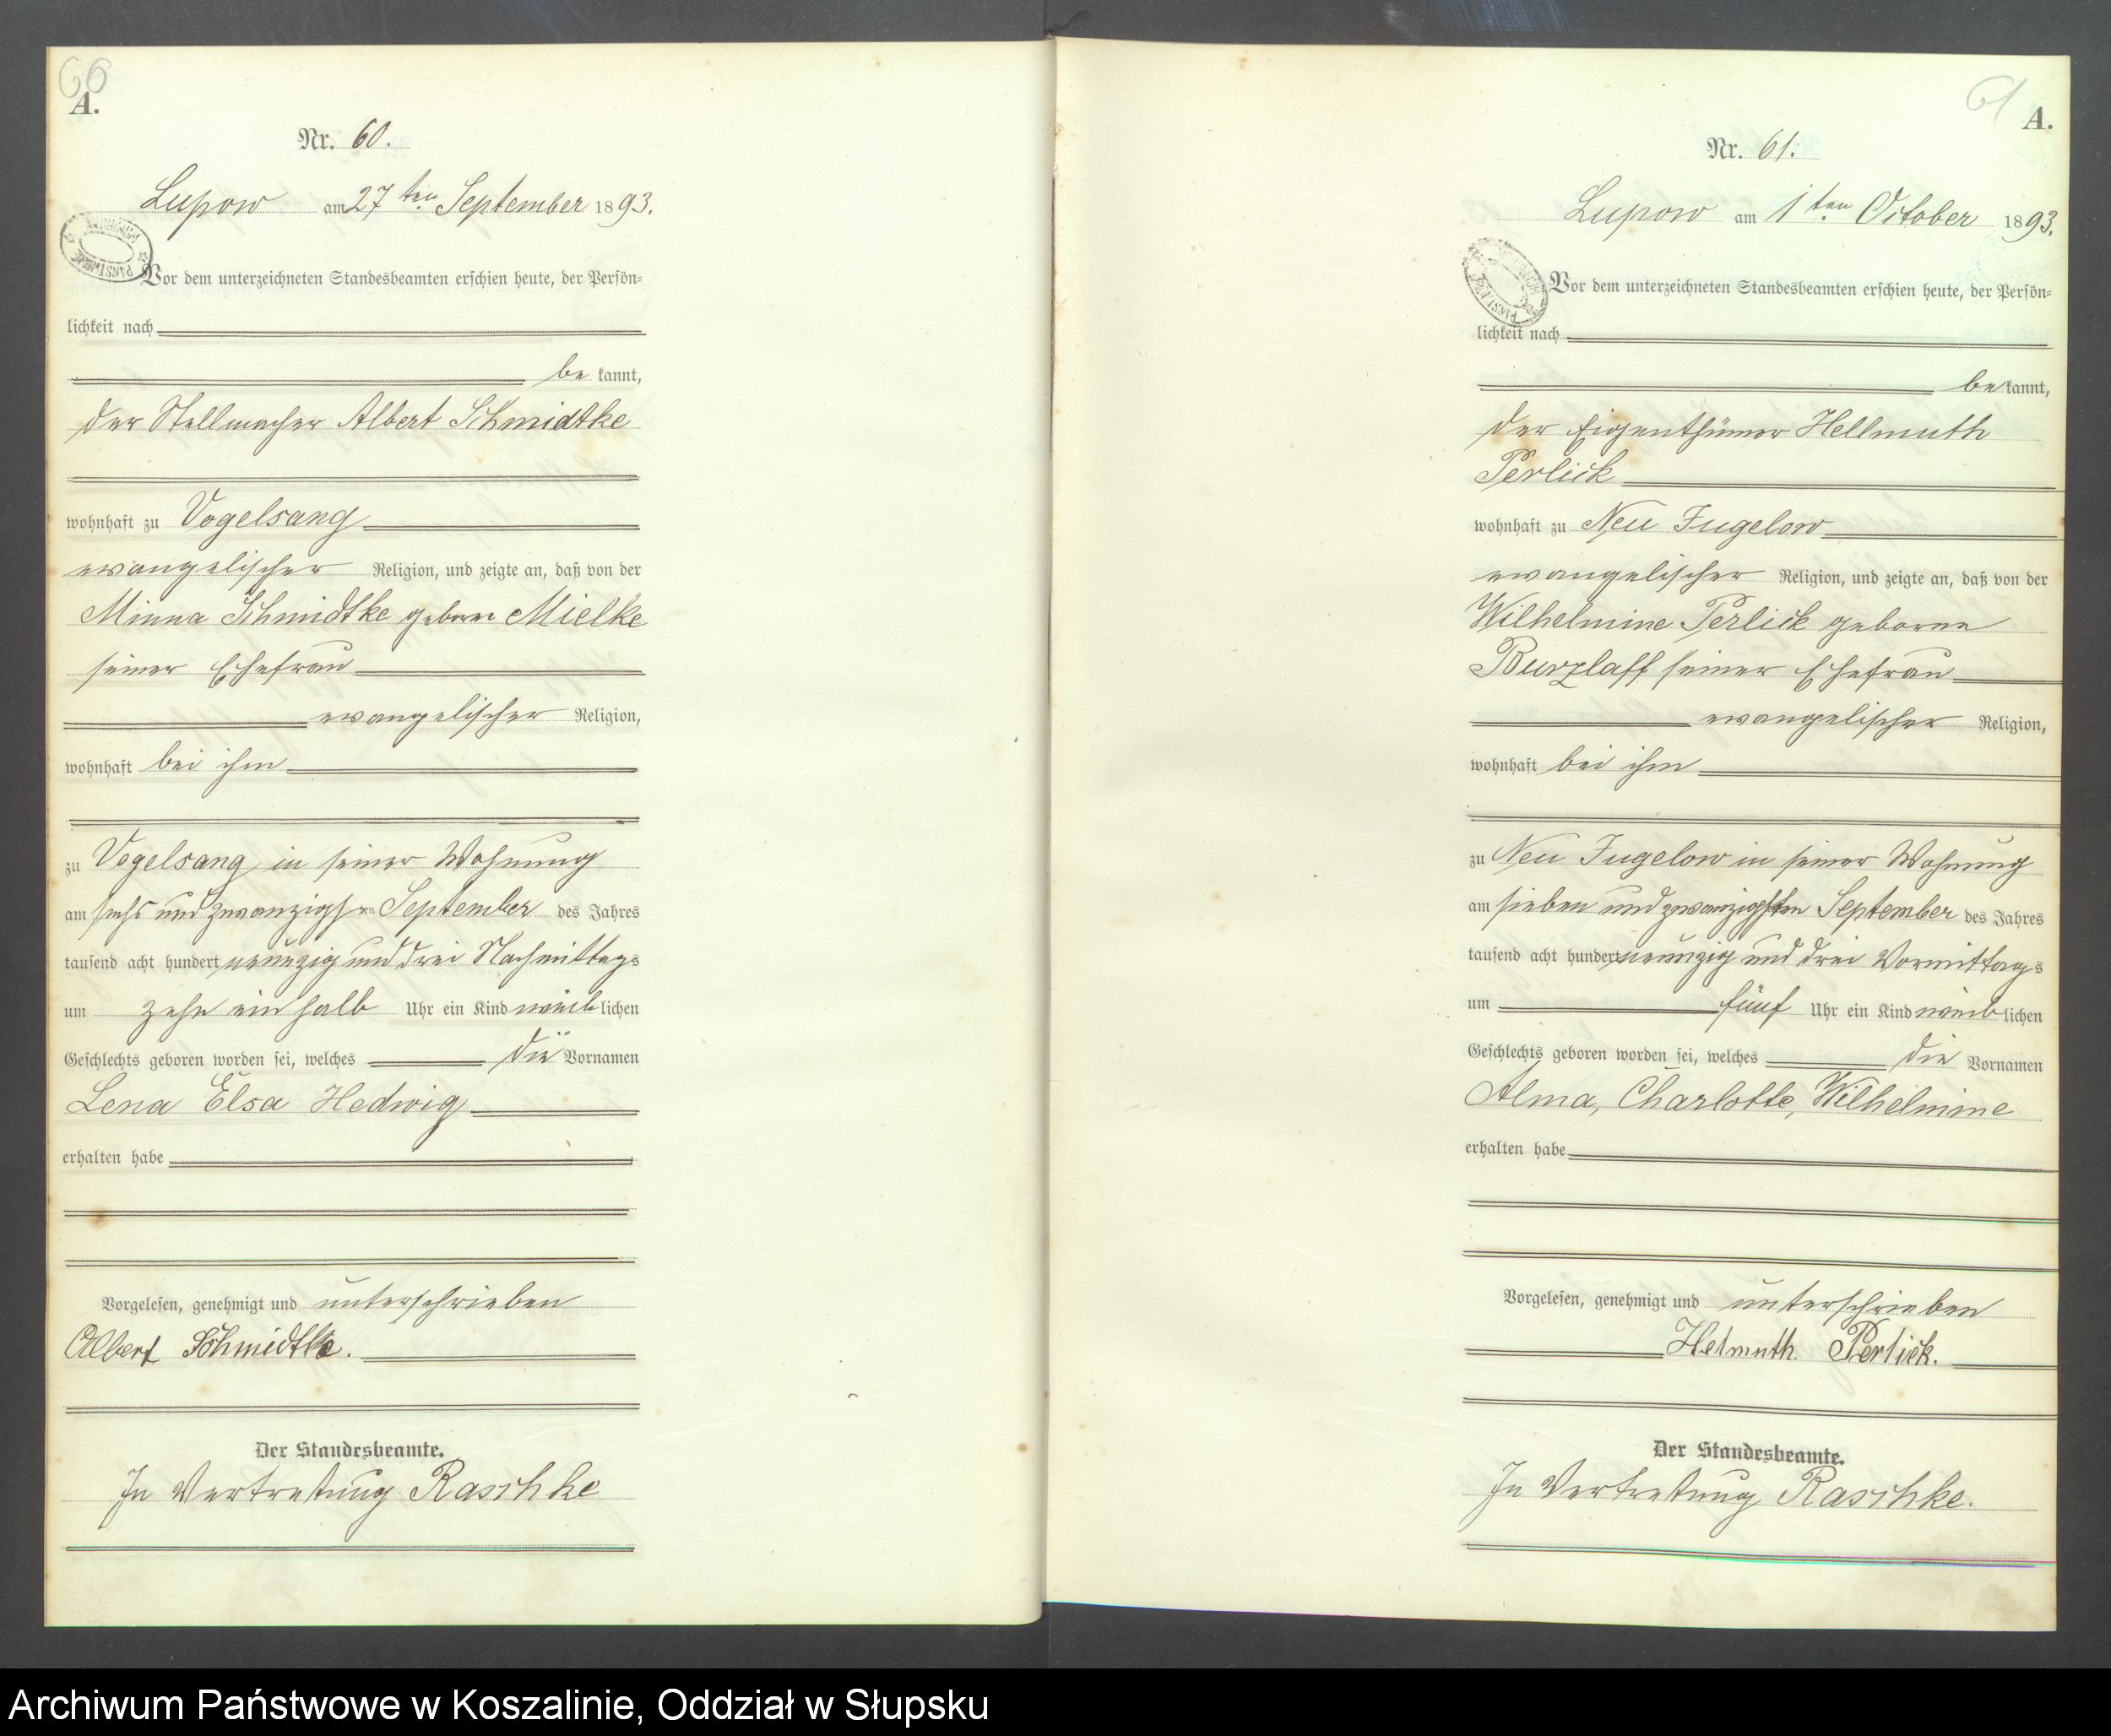 66
A.
Nr. 60.
Lupow am 27ten September 1893.
Vor dem unterzeichneten Standesbeamten erschien heute, der Persön=
lichkeit nach
be kannt,
der Stellmacher Albert Schmidtke
wohnhaft zu Vogelsang
evangelischer Religion, und zeigte an, daß von der
Minna Schmidtke geborne Mielke
seiner Ehefrau
evangelischer Religion,
wohnhaft bei ihm
zu Vogelsang in seiner Wohnung
am sechs und zwanzigsten September des Jahres
tausend acht hundert neunzig und drei Nachmittags
um zehn ein halb Uhr ein Kind weiblichen
Geschlechts geboren worden sei, welches die Vornamen
Lena Elsa Hedwig
erhalten habe
Vorgelesen, genehmigt und unterschrieben
Albert Schmidtke.
Der Standesbeamte.
In Vertretung Raschke
61
A.
Nr. 61.
Lupow am 1ten October 1893.
Vor dem unterzeichneten Standesbeamten erschien heute, der Persön=
lichkeit nach
be kannt,
der Eigenthümer Hellmuth
Perlick
wohnhaft zu Neu Jugelow
evangelischer Religion, und zeigte an, daß von der
Wilhelmine Perlick geborne
Burzlaff seiner Ehefrau
evangelischer Religion,
wohnhaft bei ihm
zu Neu Jugelow in seiner Wohnung
am sieben und zwanzigsten September des Jahres
tausend acht hundert neunzig und drei Vormittags
um fünf Uhr ein Kind weiblichen
Geschlechts geboren worden sei, welches die Vornamen
Alma, Charlotte, Wilhelmine
erhalten habe
Vorgelesen, genehmigt und unterschrieben
Helmuth Perlick.
Der Standesbeamte.
In Vertretung Raschke.
Archiwum Państwowe w Koszalinie, Oddział w Słupsku